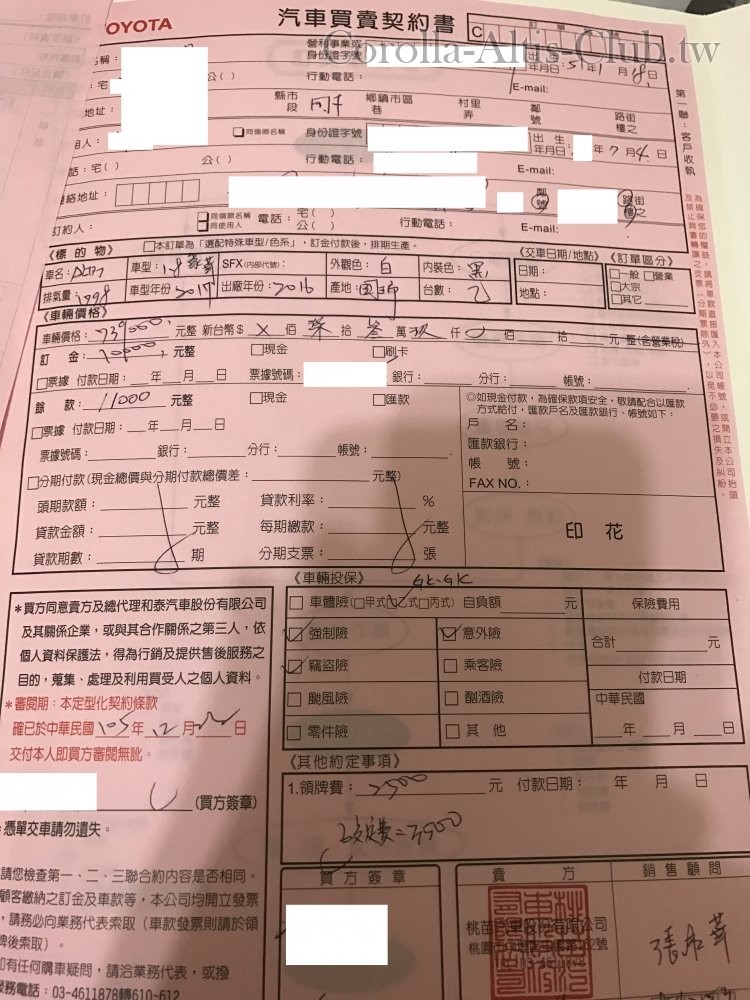 OYOTA
汽車買賣契約書
Corolla-Altis-Club.tw
C 訂單
營利事業或
稱： 身份證字號
年月日：51年1月8日
：宅 公( ) 行動電話： E-mail:
地址： 縣市 鄉鎮市區 村里 鄰 路街
段 同 巷 弄 號 樓之
用人： □同領照名稱 身份證字號 出生 年月日 年7月4日
話：宅( ) 公( ) 行動電話： E-mail:
絡地址： 鄰 路街
號 樓之
訂約人： □同領照名稱 □同使用人 電話：宅( ) 公( ) 行動電話： E-mail:
第一聯：客戶收執
《標的物》 □本訂單為「選配特殊車型/色系」，訂金付款後，排期生產。 《交車日期/地點》 《訂單區分》
車名：Altis 車型：1.8 SFX(內部代號)： 外觀色：白 內裝色：黑 日期： □一般 □營業
□大宗
排氣量：1798 車型年份：2017 出廠年份：2016 產地：國瑞 台數：乙 地點： □其它
《車輛價格》
車輛價格：739000 元整 新台幣$ X 佰 柒 拾 叁 萬 玖 仟 0 佰 拾 元 整(含營業稅)
訂 金：10000 元整 □現金 □刷卡
□票據 付款日期： 年 月 日 票據號碼： 銀行： 分行： 帳號：
餘 款：11000 元整 □現金 □匯款
□票據 付款日期： 年 月 日
票據號碼： 銀行： 分行： 帳號：
◎如現金付款，為確保款項安全，敬請配合以匯款
方式給付，匯款戶名及匯款銀行、帳號如下：
戶 名：
匯款銀行：
帳 號：
FAX NO.：
□分期付款(現金總價與分期付款總價差： 元整)
頭期款額： 元整 貸款利率： %
貸款金額： 元整 每期繳款： 元整
貸款期數： 期 分期支票： 張
印 花
＊買方同意賣方及總代理和泰汽車股份有限公司
及其關係企業，或與其合作關係之第三人，依
個人資料保護法，得為行銷及提供售後服務之
目的，蒐集、處理及利用買受人之個人資料。
＊審閱期：本定型化契約條款
確已於中華民國105年12月 日
交付本人即買方審閱無訛。
(買方簽章)
憑單交車請勿遺失。
《車輛投保》
□車體險(□甲式□乙式□丙式) 自負額 元 保險費用
□強制險 □意外險 合計 元
□竊盜險 □乘客險 付款日期
□颱風險 □酗酒險 中華民國
□零件險 □其 他 年 月 日
《其他約定事項》
1.領牌費：2500 元 付款日期： 年 月 日
=3500
請您檢查第一、二、三聯合約內容是否相同。
顧客繳納之訂金及車款等，本公司均開立發票
，請務必向業務代表索取（車款發票則請於領
牌後索取）。
如有任何購車疑問，請洽業務代表，或撥
服務電話：03-4611878轉610-612
買方簽章
賣 方
桃苗汽車股份有限公司
銷售顧問